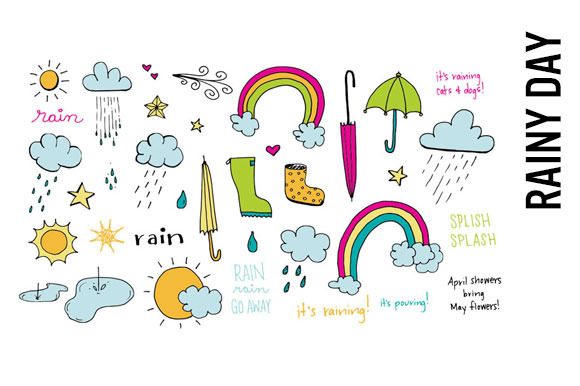 it's raining
cats & dogs!
rain
rain
SPLISH
SPLASH
RAIN
rain
GO AWAY
it's raining!
it's pouring!
April showers
bring
May flowers!
RAINY DAY